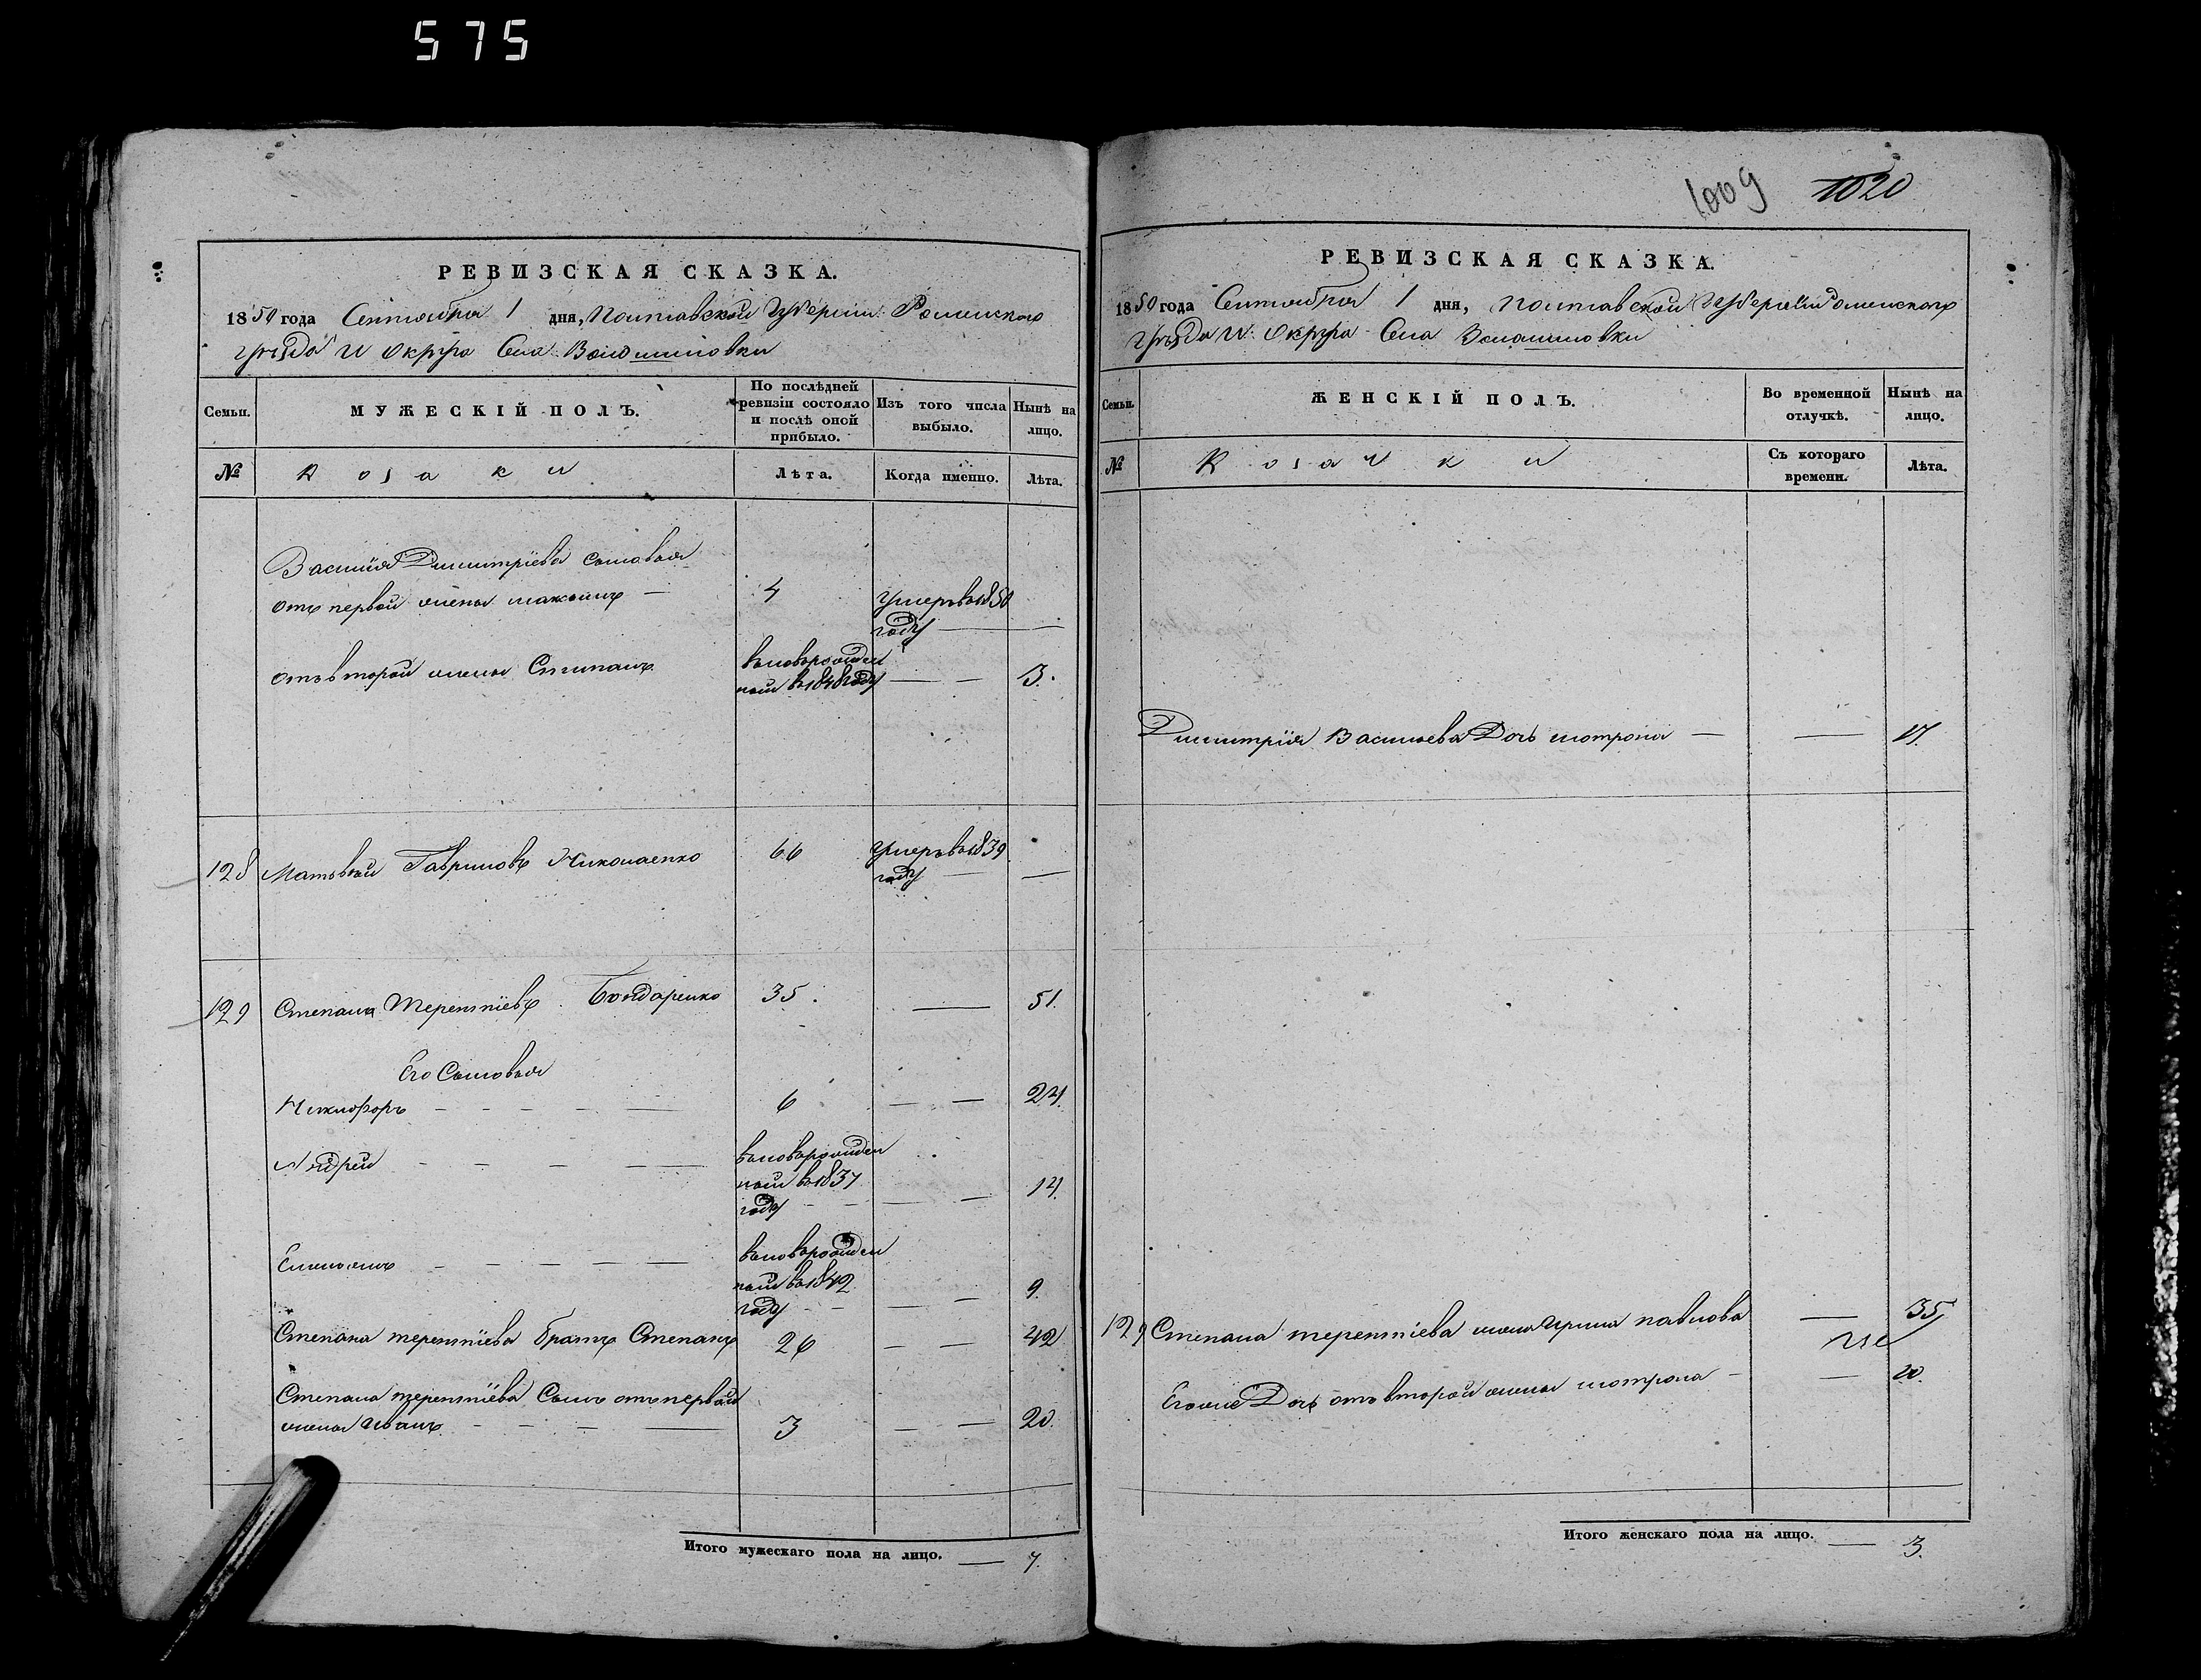 575
1009 1020
РЕВИЗСКАЯ СКАЗКА.
1850 года Сентября 1 дня, Полтавской Губернии Роменского
уезда и Округа Села Волошиновки
Семьи. МУЖЕСКІЙ ПОЛЪ. По послѣдней ревизіи состояло и послѣ оной прибыло. Изъ того числа выбыло. Нынѣ на лицо.
№ Козаки Лѣта. Когда именно. Лѣта.
Василія Дмитріева сыновья
отъ первой жены Максимъ — 4 умеръ въ 1850
году — —
отъ второй жены Степанъ вновьрожден
ный въ 1848 году — — 3.
128 Матвѣй Гавриловъ Николаенко 66 умеръ въ 1839
году — —
129 Степанъ Терентіевъ Бондаренко 35. — 51.
Его Сыновья
Никифоръ — 6 — — 24.
Андрей — вновьрожден
ный въ 1837
году — — 14.
Емельянъ — вновьрожден
ный въ 1842
году — — 9.
Степана терентіева братъ Степанъ 26 — — 42
Степана терентіева Сынъ отъ первой
жены Иванъ — 3 — — 20.
Итого мужескаго пола на лицо. — 7.
РЕВИЗСКАЯ СКАЗКА.
1850 года Сентября 1 дня, Полтавской Губерніи Роменского
уезда и Округа Села Волошиновки
Семьи. ЖЕНСКІЙ ПОЛЪ. Во временной отлучкѣ. Нынѣ на лицо.
№ Козачки Съ котораго времени. Лѣта.
Дмитрія Васильева Дочь мотрона — — 17.
129 Степана терентіева жена Ирина павлова — 35
Егоже Дочь отъ второй жены мотрона — — 10.
Итого женскаго пола на лицо. — 3.